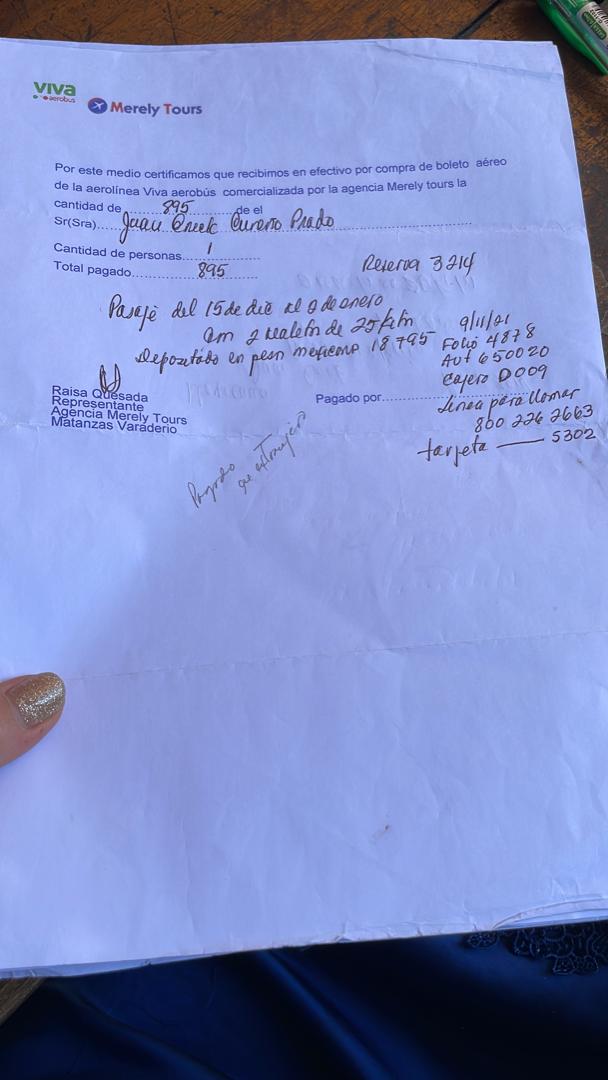 viva
aerobus
Merely Tours
Por este medio certificamos que recibimos en efectivo por compra de boleto aéreo
de la aerolínea Viva aerobús comercializada por la agencia Merely tours la
cantidad de 895 de el
Sr(Sra)....Juan Prado
Cantidad de personas 1
Total pagado 895
Reserva 3214
Pasaje del 15 de dic al 9 de enero
2 de 25
9/11/21
Depositado en peso mexicano 18 795
Folio 4878
Aut 650020
Cajero D009
Raisa Quesada
Representante
Agencia Merely Tours
Matanzas Varaderio
Pagado por
Linea para llamar
800 226 2663
tarjeta 5302
Pagado
extranjero